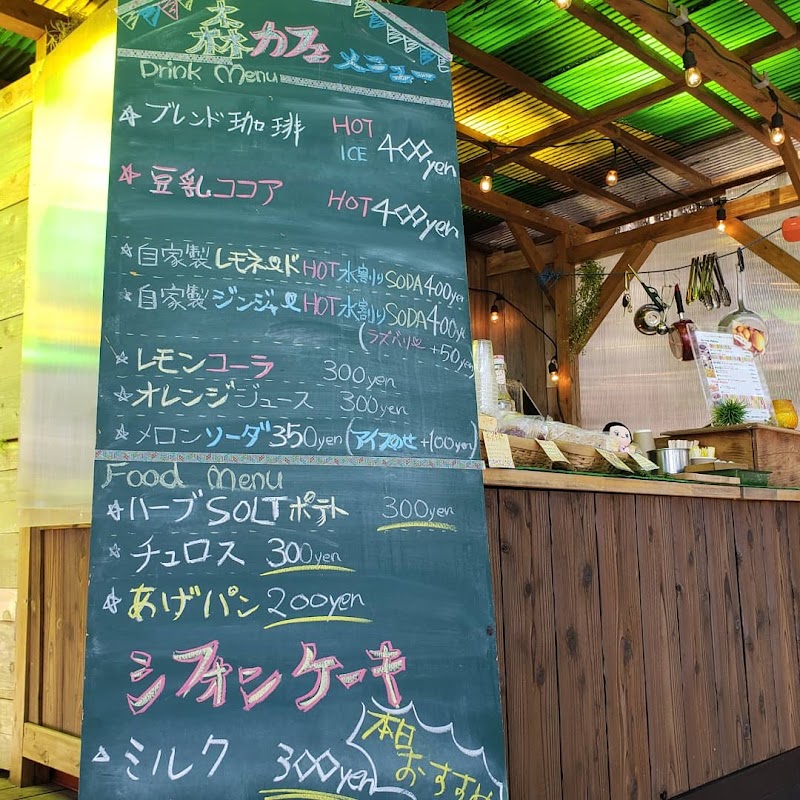 森カフェ メニュー
Drink Menu
☆ブレンド珈琲 HOT ICE 400yen
☆豆乳ココア HOT 400yen
☆自家製レモネード HOT 水割り SODA 400yen
☆自家製ジンジャー HOT 水割り SODA 400yen
(ラズベリー +50yen)
☆レモンコーラ 300yen
☆オレンジジュース 300yen
☆メロンソーダ 350yen (アイスのせ +100yen)
Food Menu
☆ハーブSOLTポテト 300yen
☆チュロス 300yen
☆あげパン 200yen
シフォンケーキ
☆ミルク 300yen
本日おすすめ